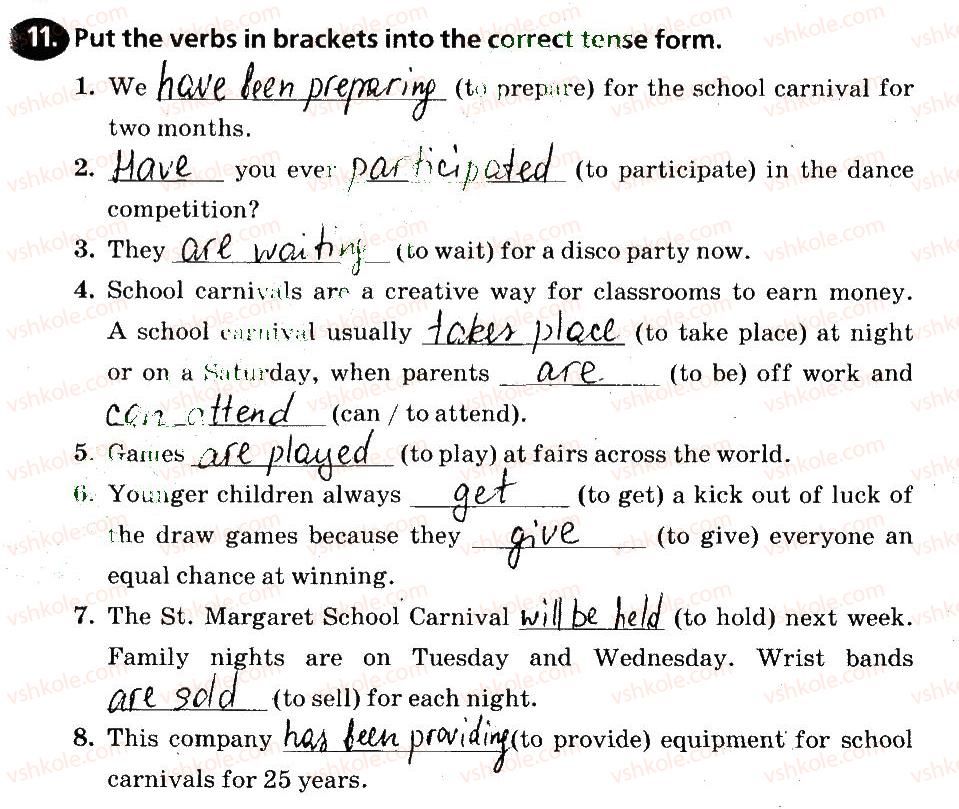 11. Put the verbs in brackets into the correct tense form.
1. We have been preparing (to prepare) for the school carnival for
two months.
2. Have you ever participated (to participate) in the dance
competition?
3. They are waiting (to wait) for a disco party now.
4. School carnivals are a creative way for classrooms to earn money.
A school carnival usually takes place (to take place) at night
or on a Saturday, when parents are (to be) off work and
can attend (can / to attend).
5. Games are played (to play) at fairs across the world.
6. Younger children always get (to get) a kick out of luck of
the draw games because they give (to give) everyone an
equal chance at winning.
7. The St. Margaret School Carnival will be held (to hold) next week.
Family nights are on Tuesday and Wednesday. Wrist bands
are sold (to sell) for each night.
8. This company has been providing (to provide) equipment for school
carnivals for 25 years.